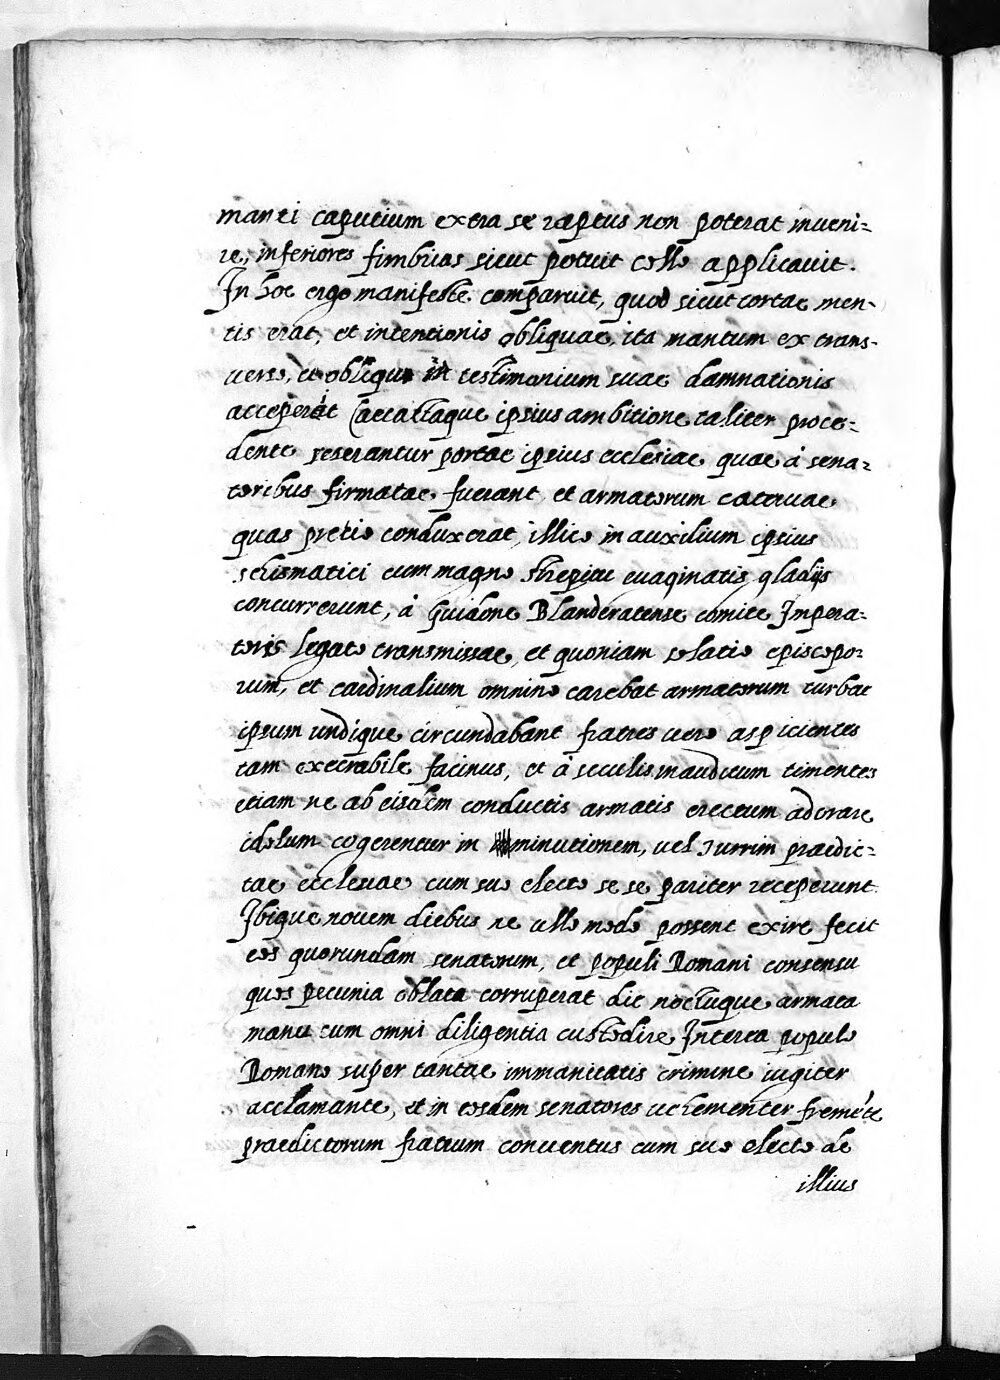 manti caputium extra se raptus non poterat inueni=
re, inferiores fimbrias sicut potuit collo applicauit.
In hoc ergo manifeste comparuit, quod sicut tortae men-
tis erat, et intentionis obliquae, ita mantum ex trans-
uerso, et obliquo in testimonium suae damnationis
acceperat Caecattaque ipsius ambitione taliter proce=
dente reserantur portae ipsius ecclesiae quae à sena=
toribus firmatae fuerant, et armatorum cateruae
quas pretio conduxerat, illico in auxilium ipsius
schismatici cum magno strepitu euaginatis gladijs
concurrerunt, à Guidone Blanderatense comite Impera=
toris legato transmissae, et quoniam solatio episcopo=
rum, et cardinalium omnino carebat armatorum turbae
ipsum undique circundabant fratres uero aspicientes
tam execrabile facinus, et à seculis inauditum timentes
etiam ne ab eisdem conductis armatis erectum adorare
idolum cogerentur in minutionem, uel Turrim praedic=
tae ecclesiae cum suo electo se se pariter receperunt.
Ibique nouem diebus ne ullo modo possent exire fecit
eos quorundam senatorum, et populi Romani consensu
quos pecunia oblata corruperat die noctuque armata
manu cum omni diligentia custodire Interea populo
Romano super tantae immanitatis crimine iugiter
acclamante, et in eosdem senatores uehementer fremẽte
praedictorum fratrum conuentus cum suo electo de
illius